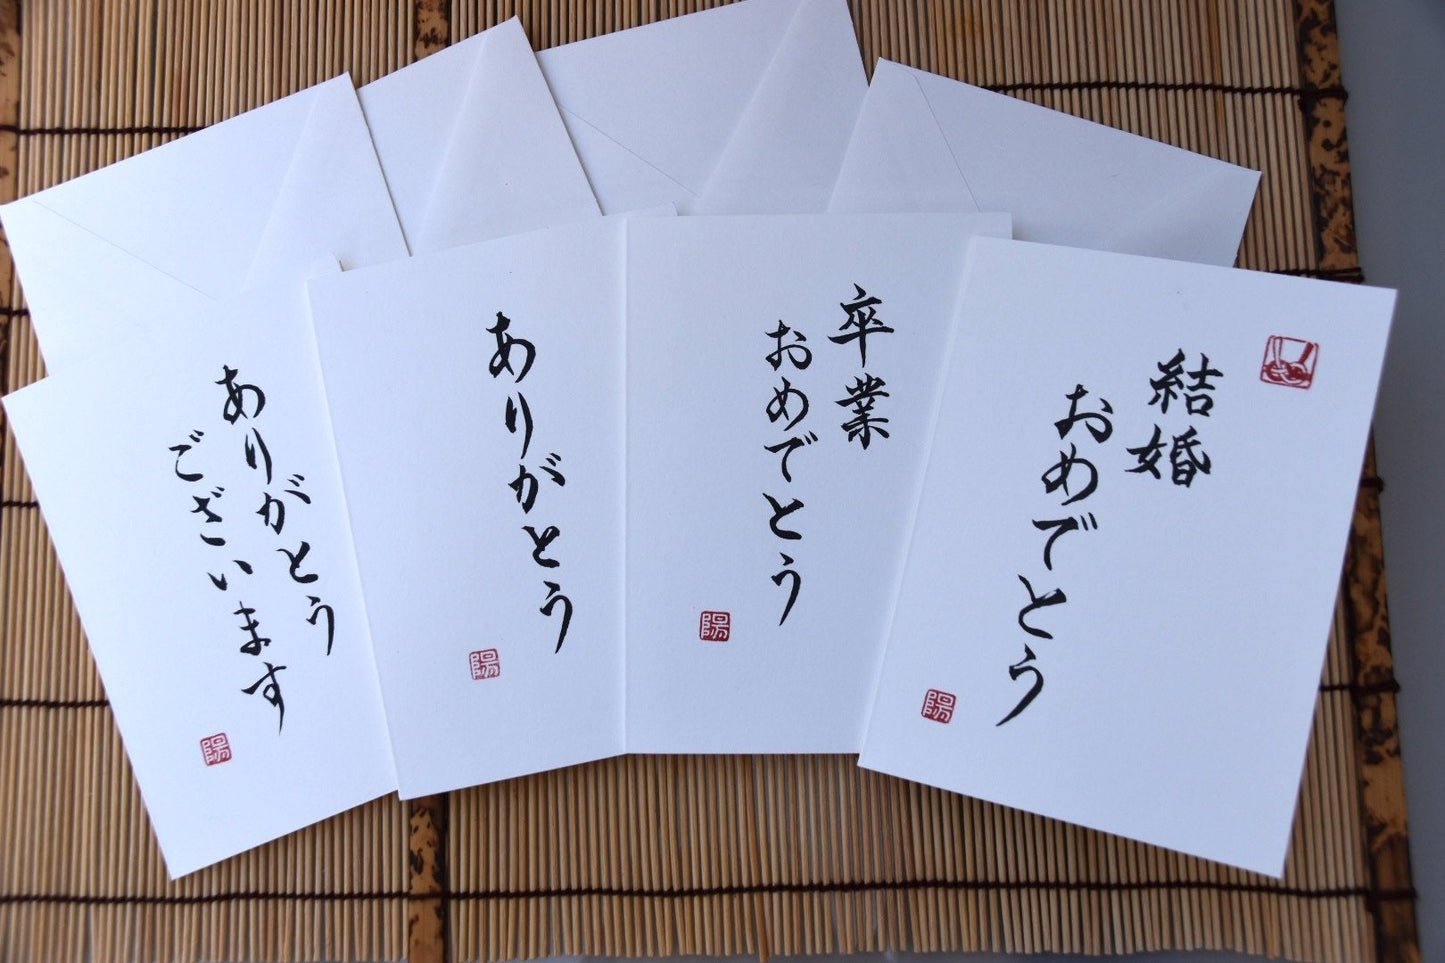 ありがとう
ございます
陽
ありがとう
陽
卒業
おめでとう
陽
結婚
おめでとう
陽